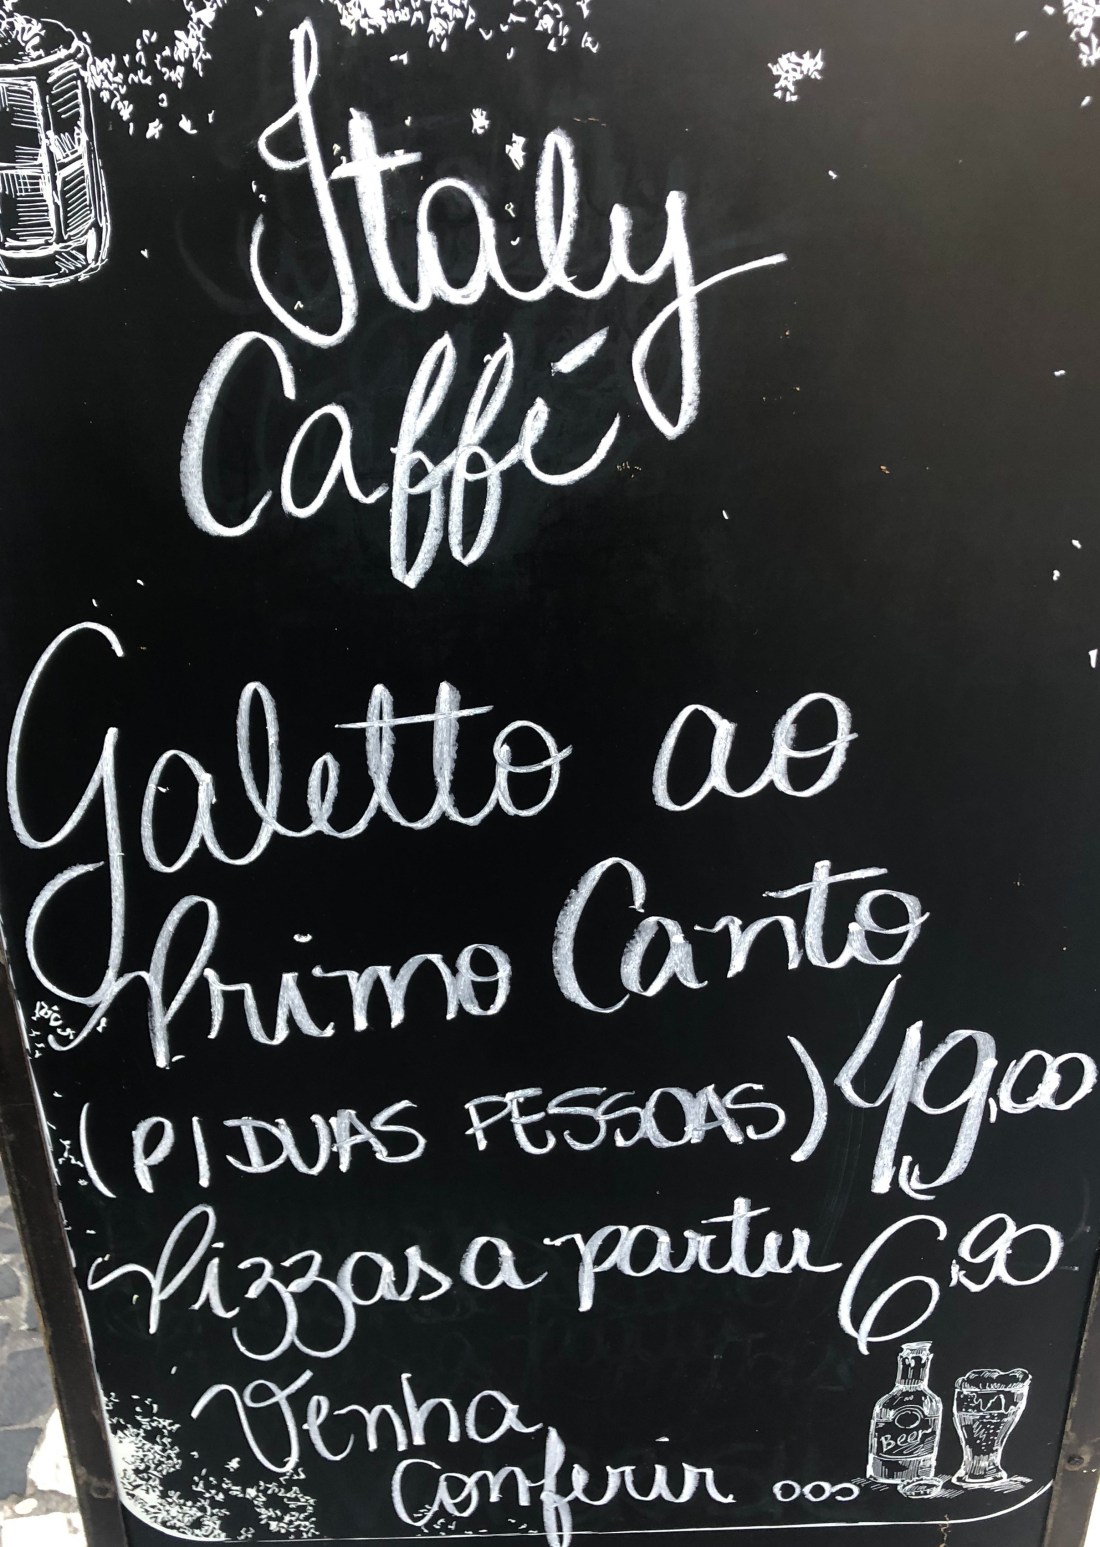 Italy
Caffé
Galetto ao
Primo Canto
(P/ DUAS PESSOAS) 49,00
Pizzas a partir 6,90
Venha
conferir ...
Beer